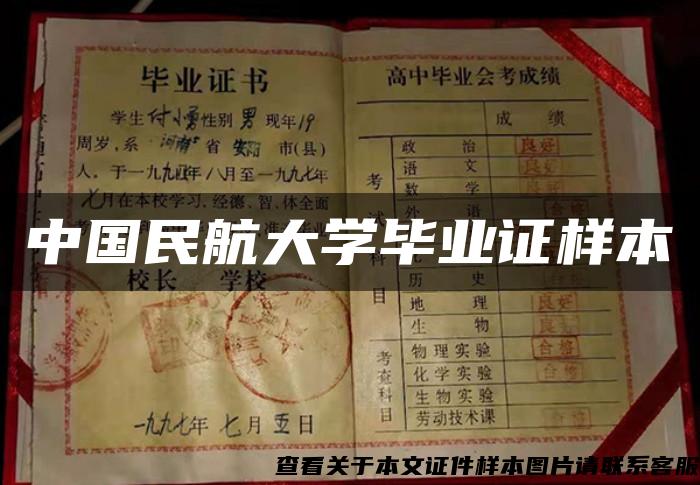 毕业证书
学生付小勇性别男现年19
周岁,系河南省安阳市(县)
人,于一九九四年八月至一九九七年
七月在本校学习,经德、智、体全面
校长 学校
一九九七年七月五日
高中毕业会考成绩
成 绩
考试科目
政 治 良好
语 文 良好
数 学 良好
外 语 合格
历 史 合格
地 理 良好
生 物 良好
考查科目
物理实验 合格
化学实验 合格
生物实验
劳动技术课 合格
中国民航大学毕业证样本
查看关于本文证件样本图片请联系客服